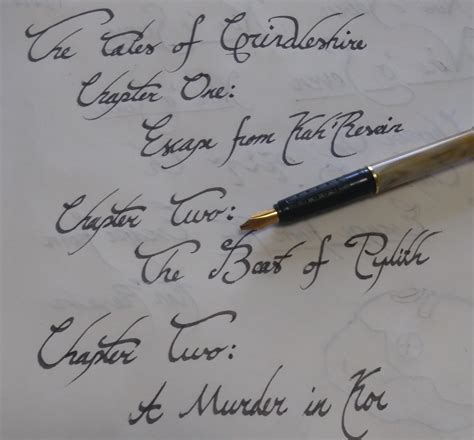 The Tales of Grindleshire
Chapter One:
Escape from Kah'Resair
Chapter Two:
The Beast of Pylith
Chapter Two:
A Murder in Kor